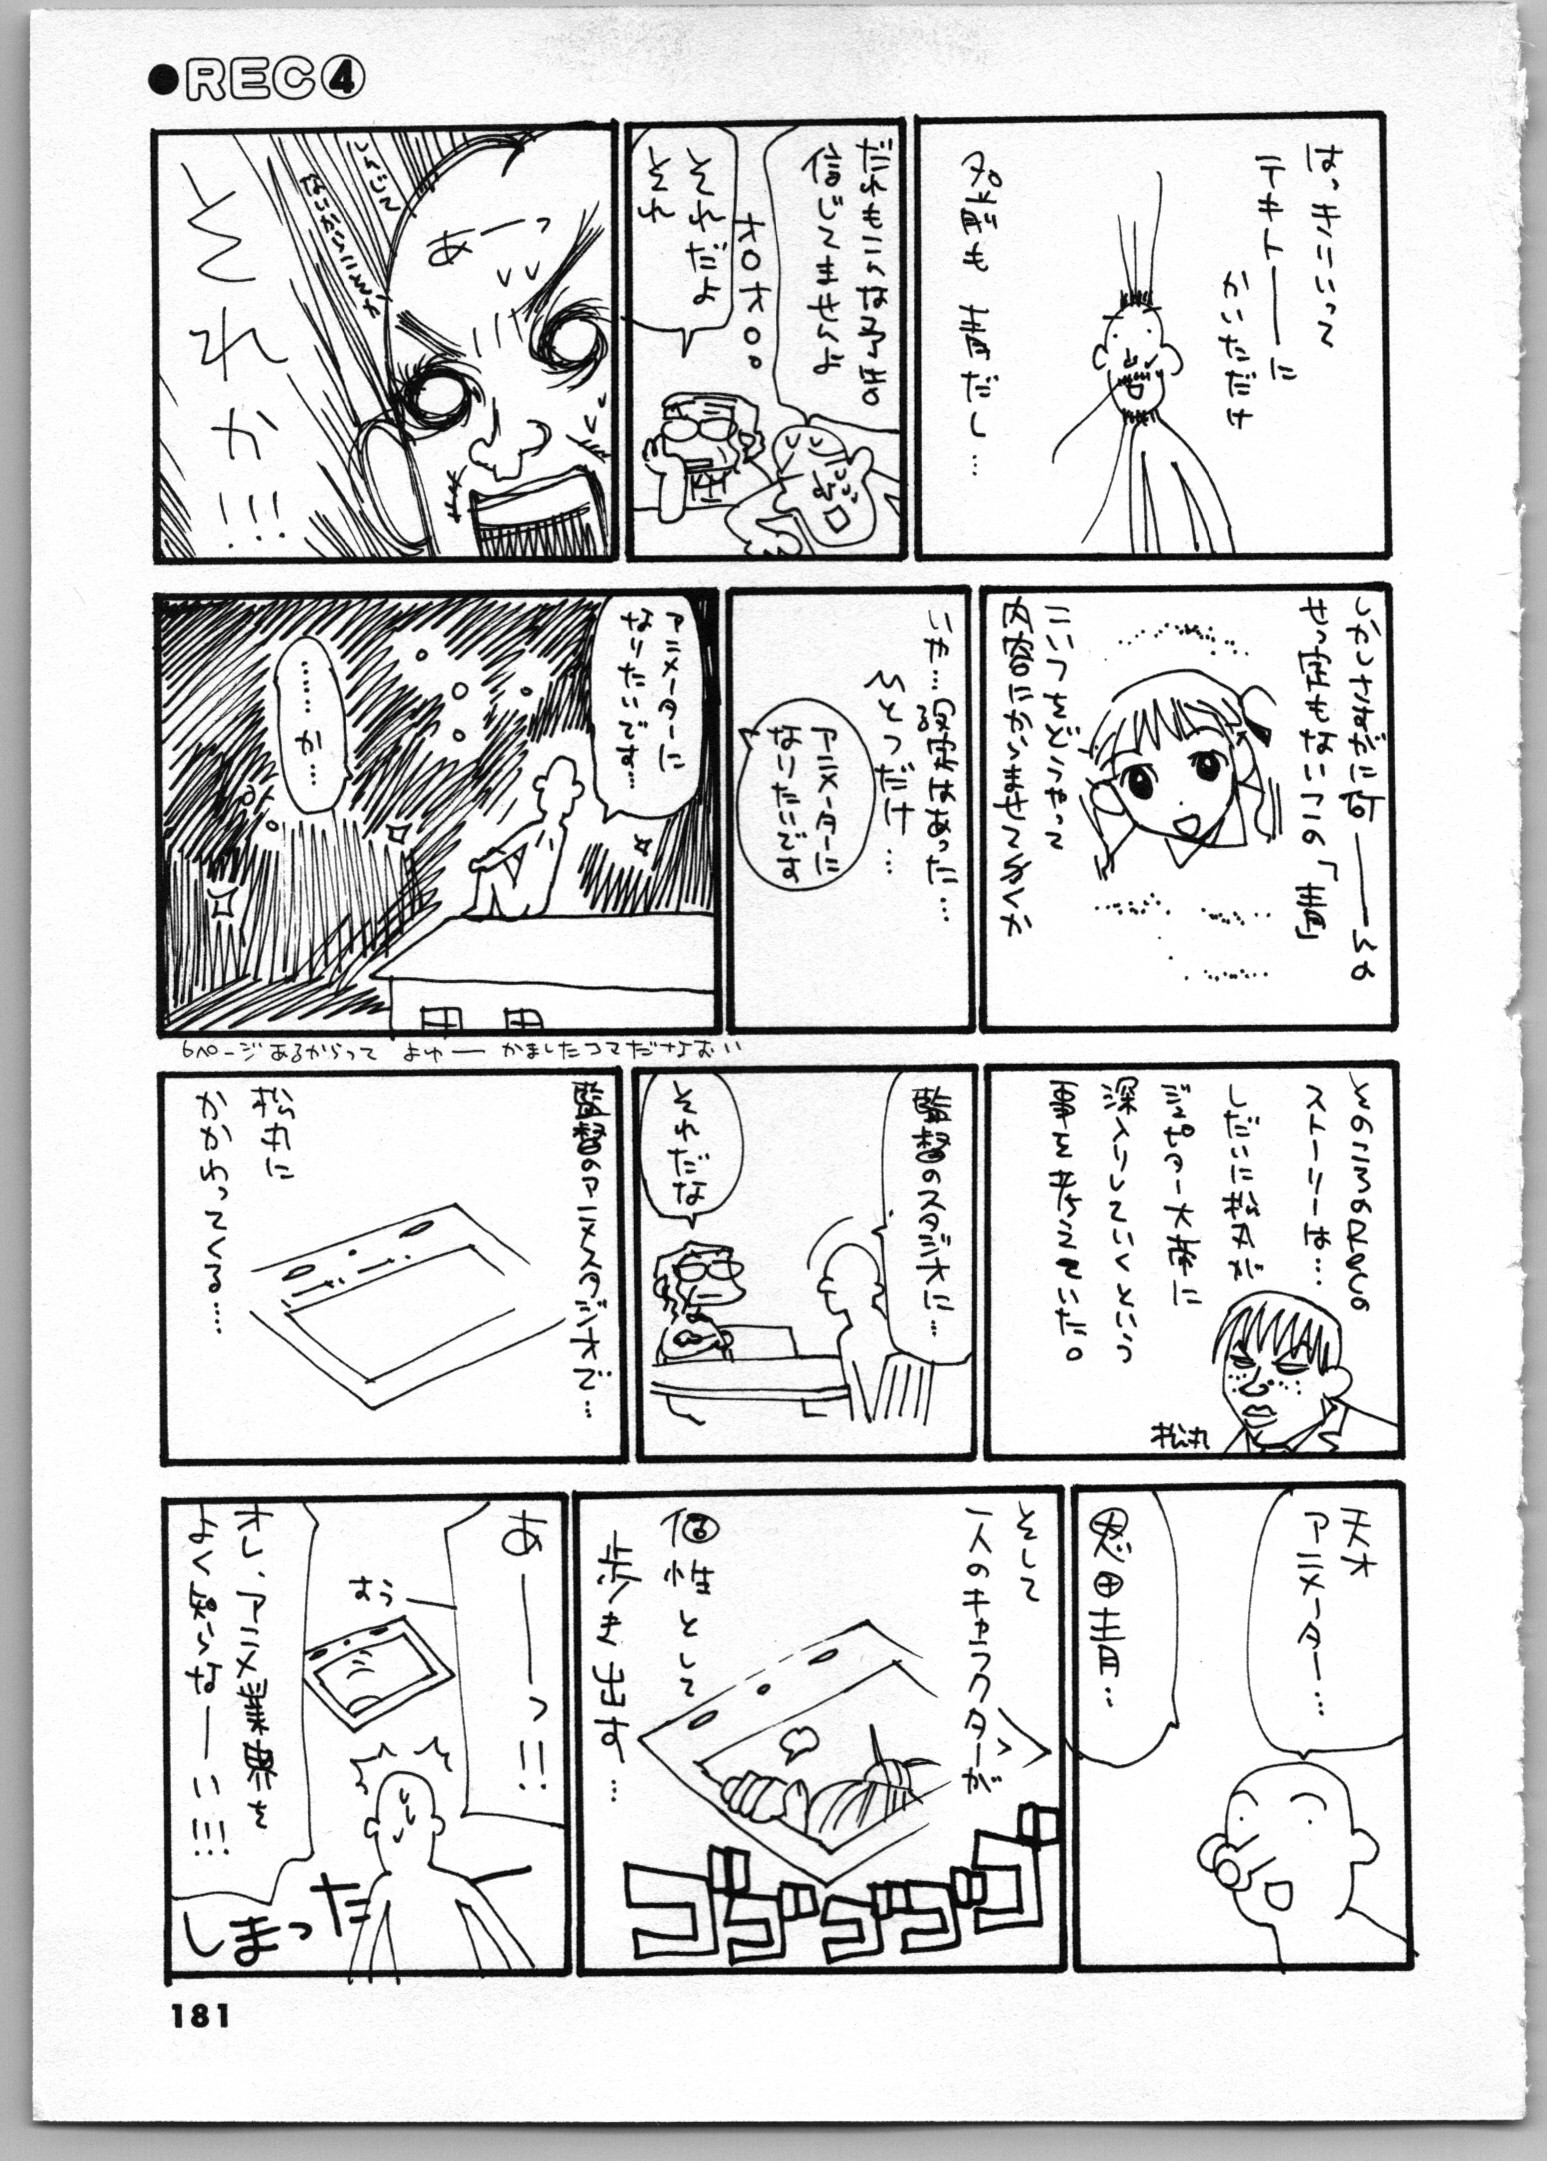 ●REC④
はっきりいって
テキトーーに
かいただけ
名前も 青だし…
だれもこんな予告
信じてませんよ
オロオロ。
それだよ
それ
あーっ
それか!!!
しかしまだに何ーーんの
せっ定もないこの「青」
こいつをどうやって
内容にからませてゆくか
いや…設定はあった…
ひとつだけ…
アニメーターに
なりたいです
アニメーターに
なりたいです…
……か…
6ページあるからって よゆー かましたコマだなおい
そのころのRECの
ストーリーは…
しだいに松丸が
ジュピター大崎に
深入りしていくという
事を考えていた。
松丸
監督のスタジオに…
それだな
監督のアニメスタジオで…
松丸に
かかわってくる…
天才
アニメーター…
恩田青…
そして
一人のキャラクターが
個性として
歩き出す…
ゴゴゴゴゴ
あーーっ!!
すうー
オレ、アニメ業界を
よく知らなーーい!!!
しまった
181